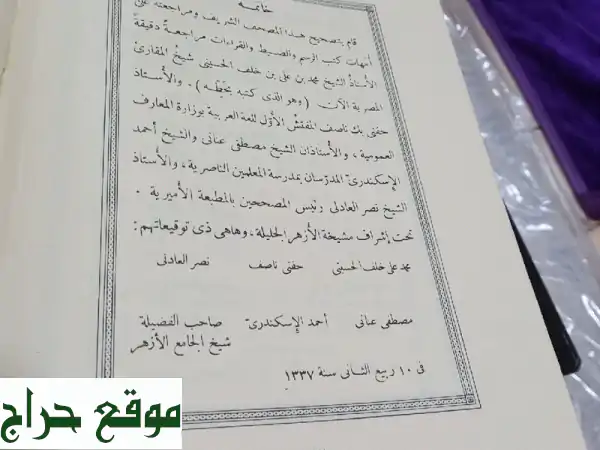 خاتمة
قام بتصحيح هذا المصحف الشريف ومراجعته على
أمهات كتب الرسم والضبط والقراءات مراجعةً دقيقةً
الأستاذُ الشيخ محمد بن على بن خلف الحسينى شيخُ المقارئ
المصرية الآن (وهو الذى كتبه بخطِّه)، والأُستاذ
حفنى بك ناصف المفتشُ الأوّل للغة العربية بوزارة المعارف
العمومية، والأُستاذان الشيخ مصطفى عنانى والشيخ أحمد
الإسكندرىّ المدرّسان بمدرسة المعلمين الناصرية، والأُستاذ
الشيخ نصر العادلى رئيس المصححين بالمطبعة الأميرية.
تحت إشراف مشيخة الأزهر الجليلة، وهاهى ذى توقيعاتهم:
محمد على خلف الحسينى حفنى ناصف نصر العادلى
مصطفى عنانى أحمد الإسكندرىّ صاحب الفضيلة
شيخ الجامع الأزهر
فى ١٠ ربيع الثانى سنة ١٣٣٧
موقع حراج